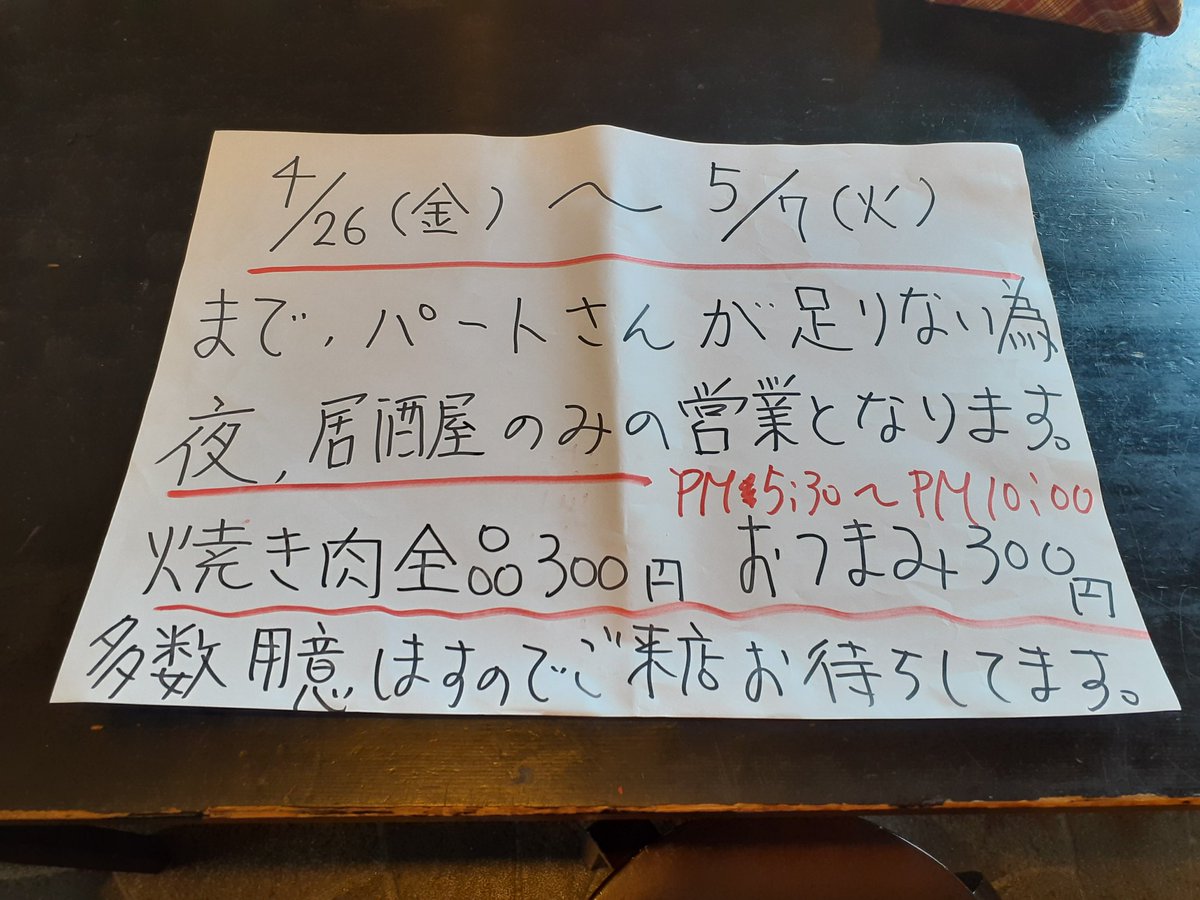 4/26(金)〜5/7(火)
まで、パートさんが足りない為
夜、居酒屋のみの営業となります。
PM5:30〜PM10:00
焼き肉全品300円 おつまみ300円
多数用意しますのでご来店お待ちしてます。